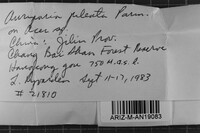 Aurigaria pileata Parm.
on Acer sp.
China: Jilin Prov.
Chang Bai Shan Forest Reserve
750 m a.s.l.
L. Ryvarden Sept 11-17, 1983
# 21810
ARIZ-M-AN19083